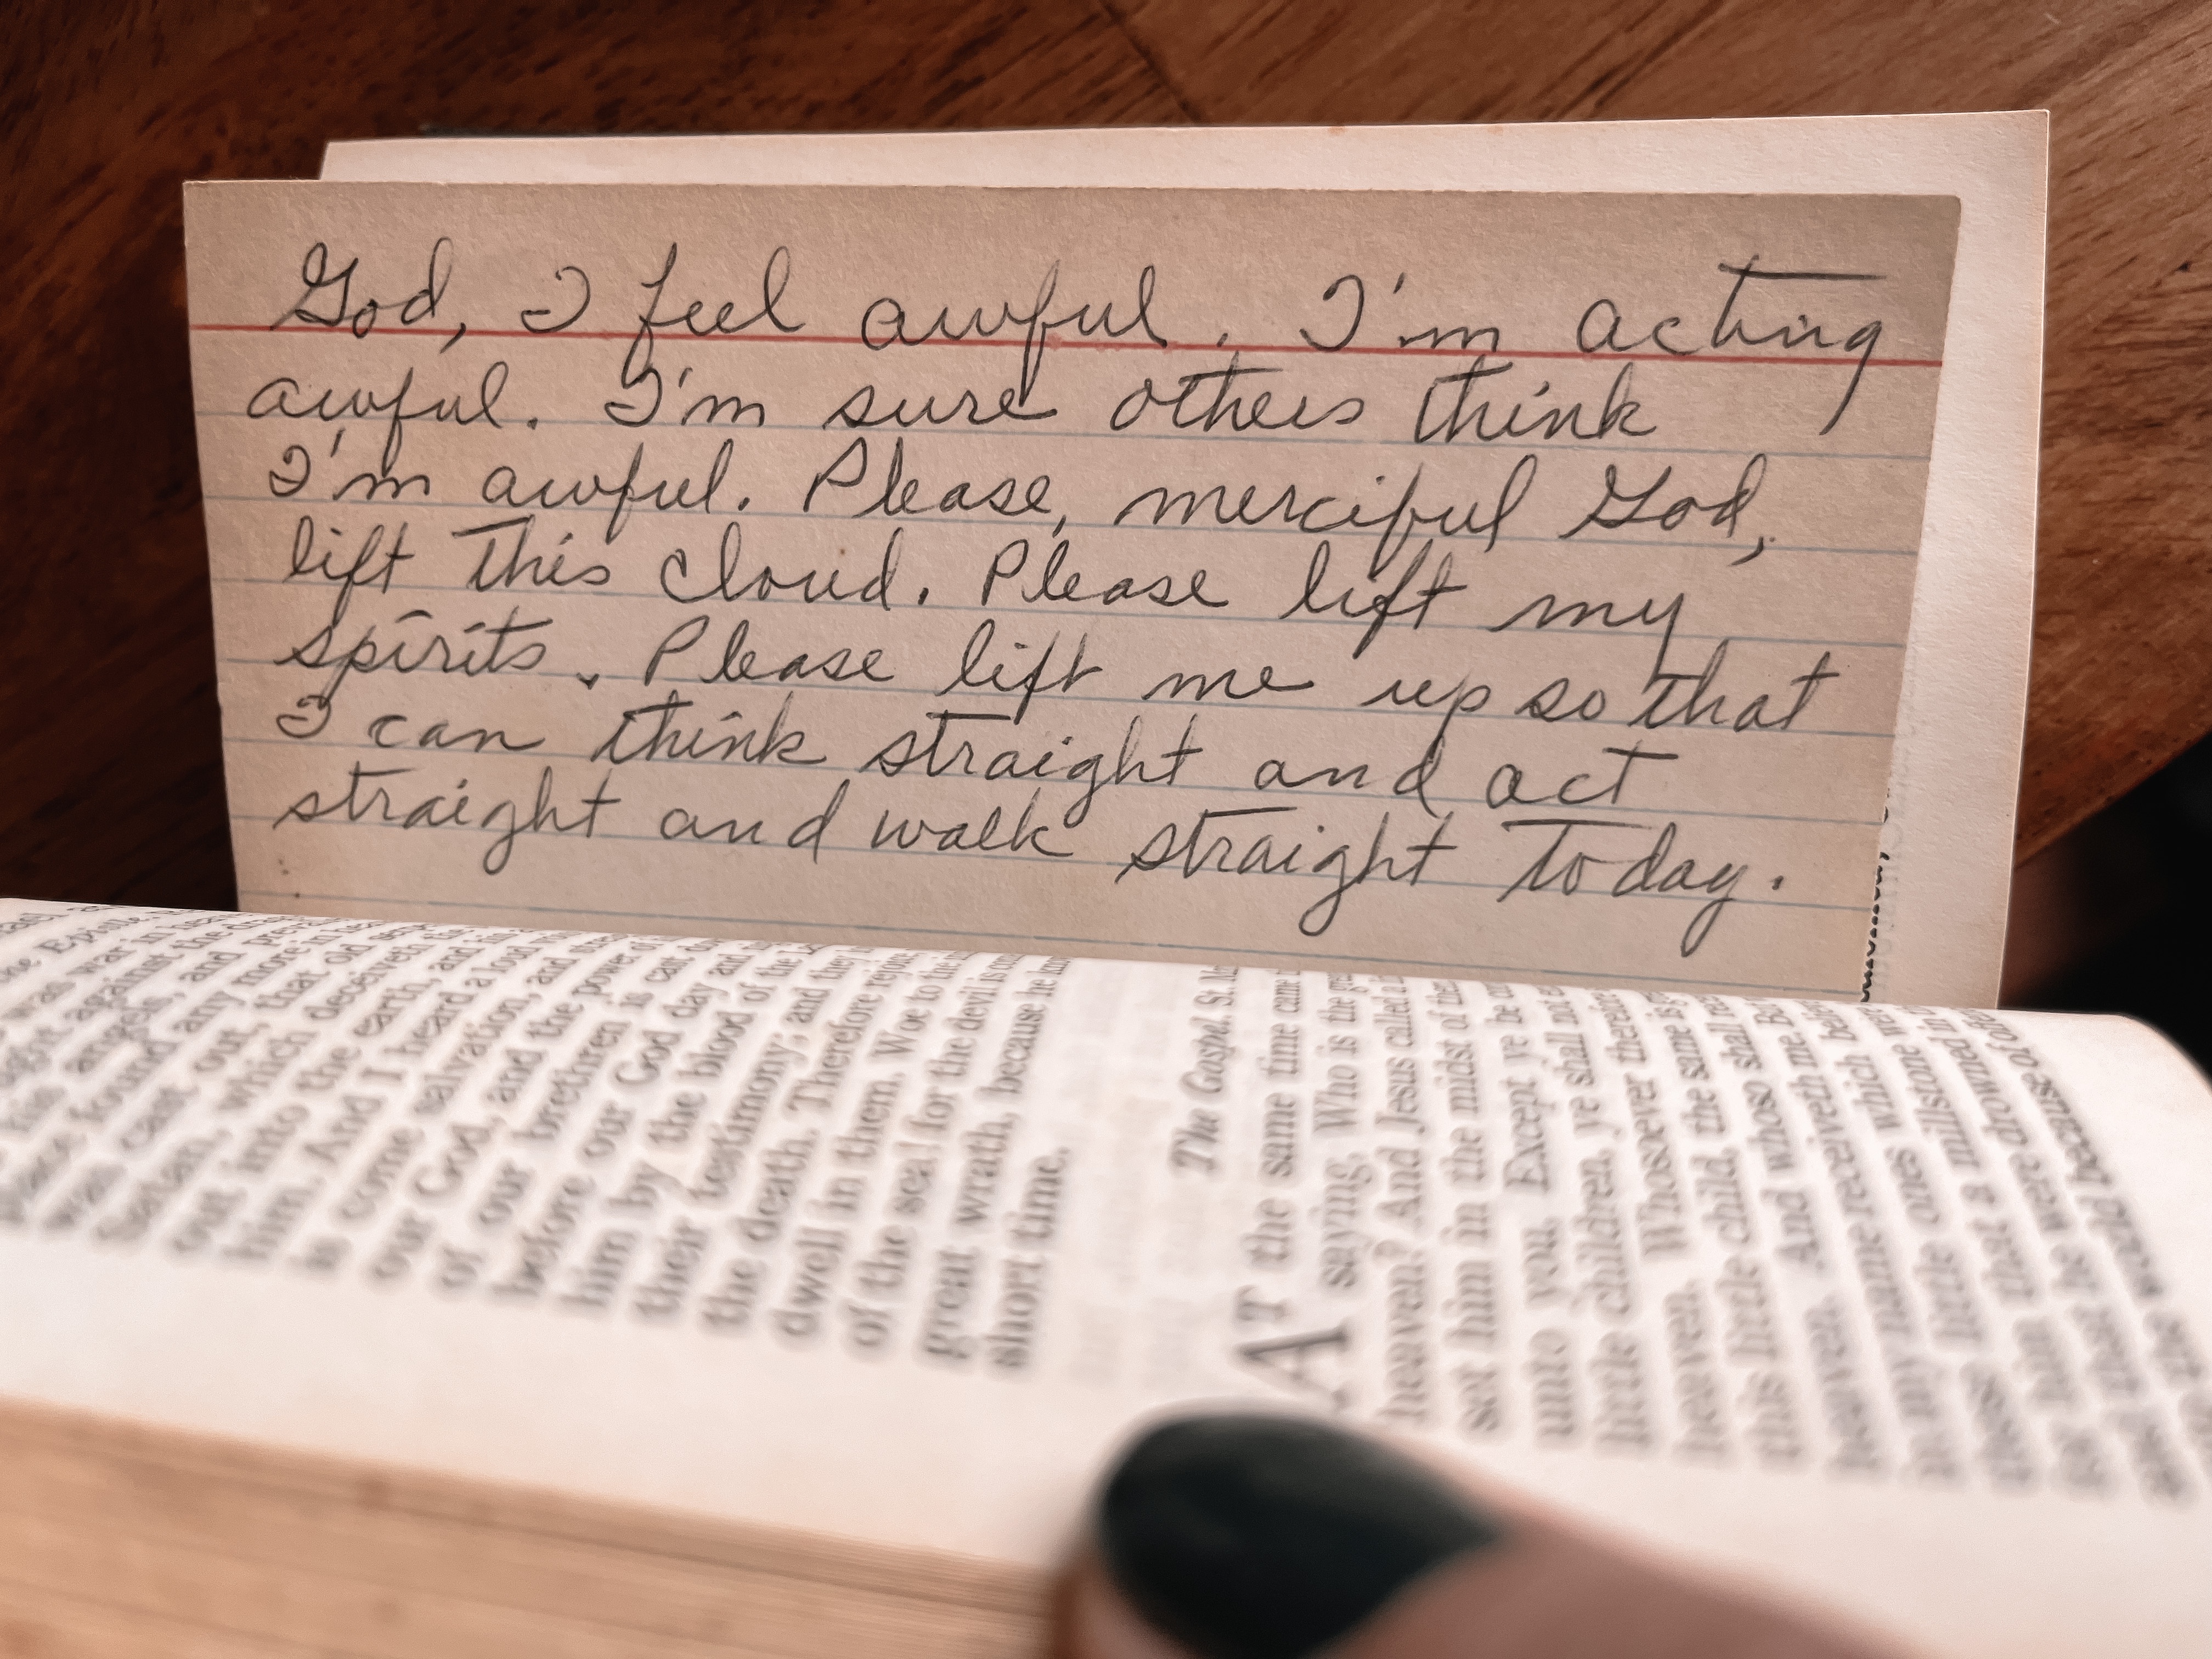 God, I feel awful. I'm acting
awful. I'm sure others think
I'm awful. Please, merciful God,
lift this cloud. Please lift my
spirits. Please lift me up so that
I can think straight and act
straight and walk straight today.
the Epistle.
was war in
against the
angels, and
found any more in
was cast out, that old
Satan, which deceiveth
out into the earth, and
him. And I heard a loud
is come salvation, and
our God, and the power of
of our brethren is cast
before our God day and
him by the blood of the
their testimony; and they
the death. Therefore
dwell in them. Woe to the
of the sea! for the devil is
great wrath, because he
short time.
The Gospel. St.
AT the same time came
saying, Who is the
heaven? And Jesus called a
set him in the midst of
unto you, Except ye be
little children, ye shall not
heaven. Whosoever therefore
this little child, the same is
heaven. And whoso shall
in my name receiveth me. But
these little ones which
for him that a millstone were
and that he were drowned in
because of